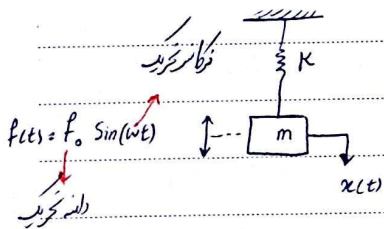 فرکانس تحریک
K
f(t) = f₀ Sin(ωt)
m
x(t)
دامنه تحریک